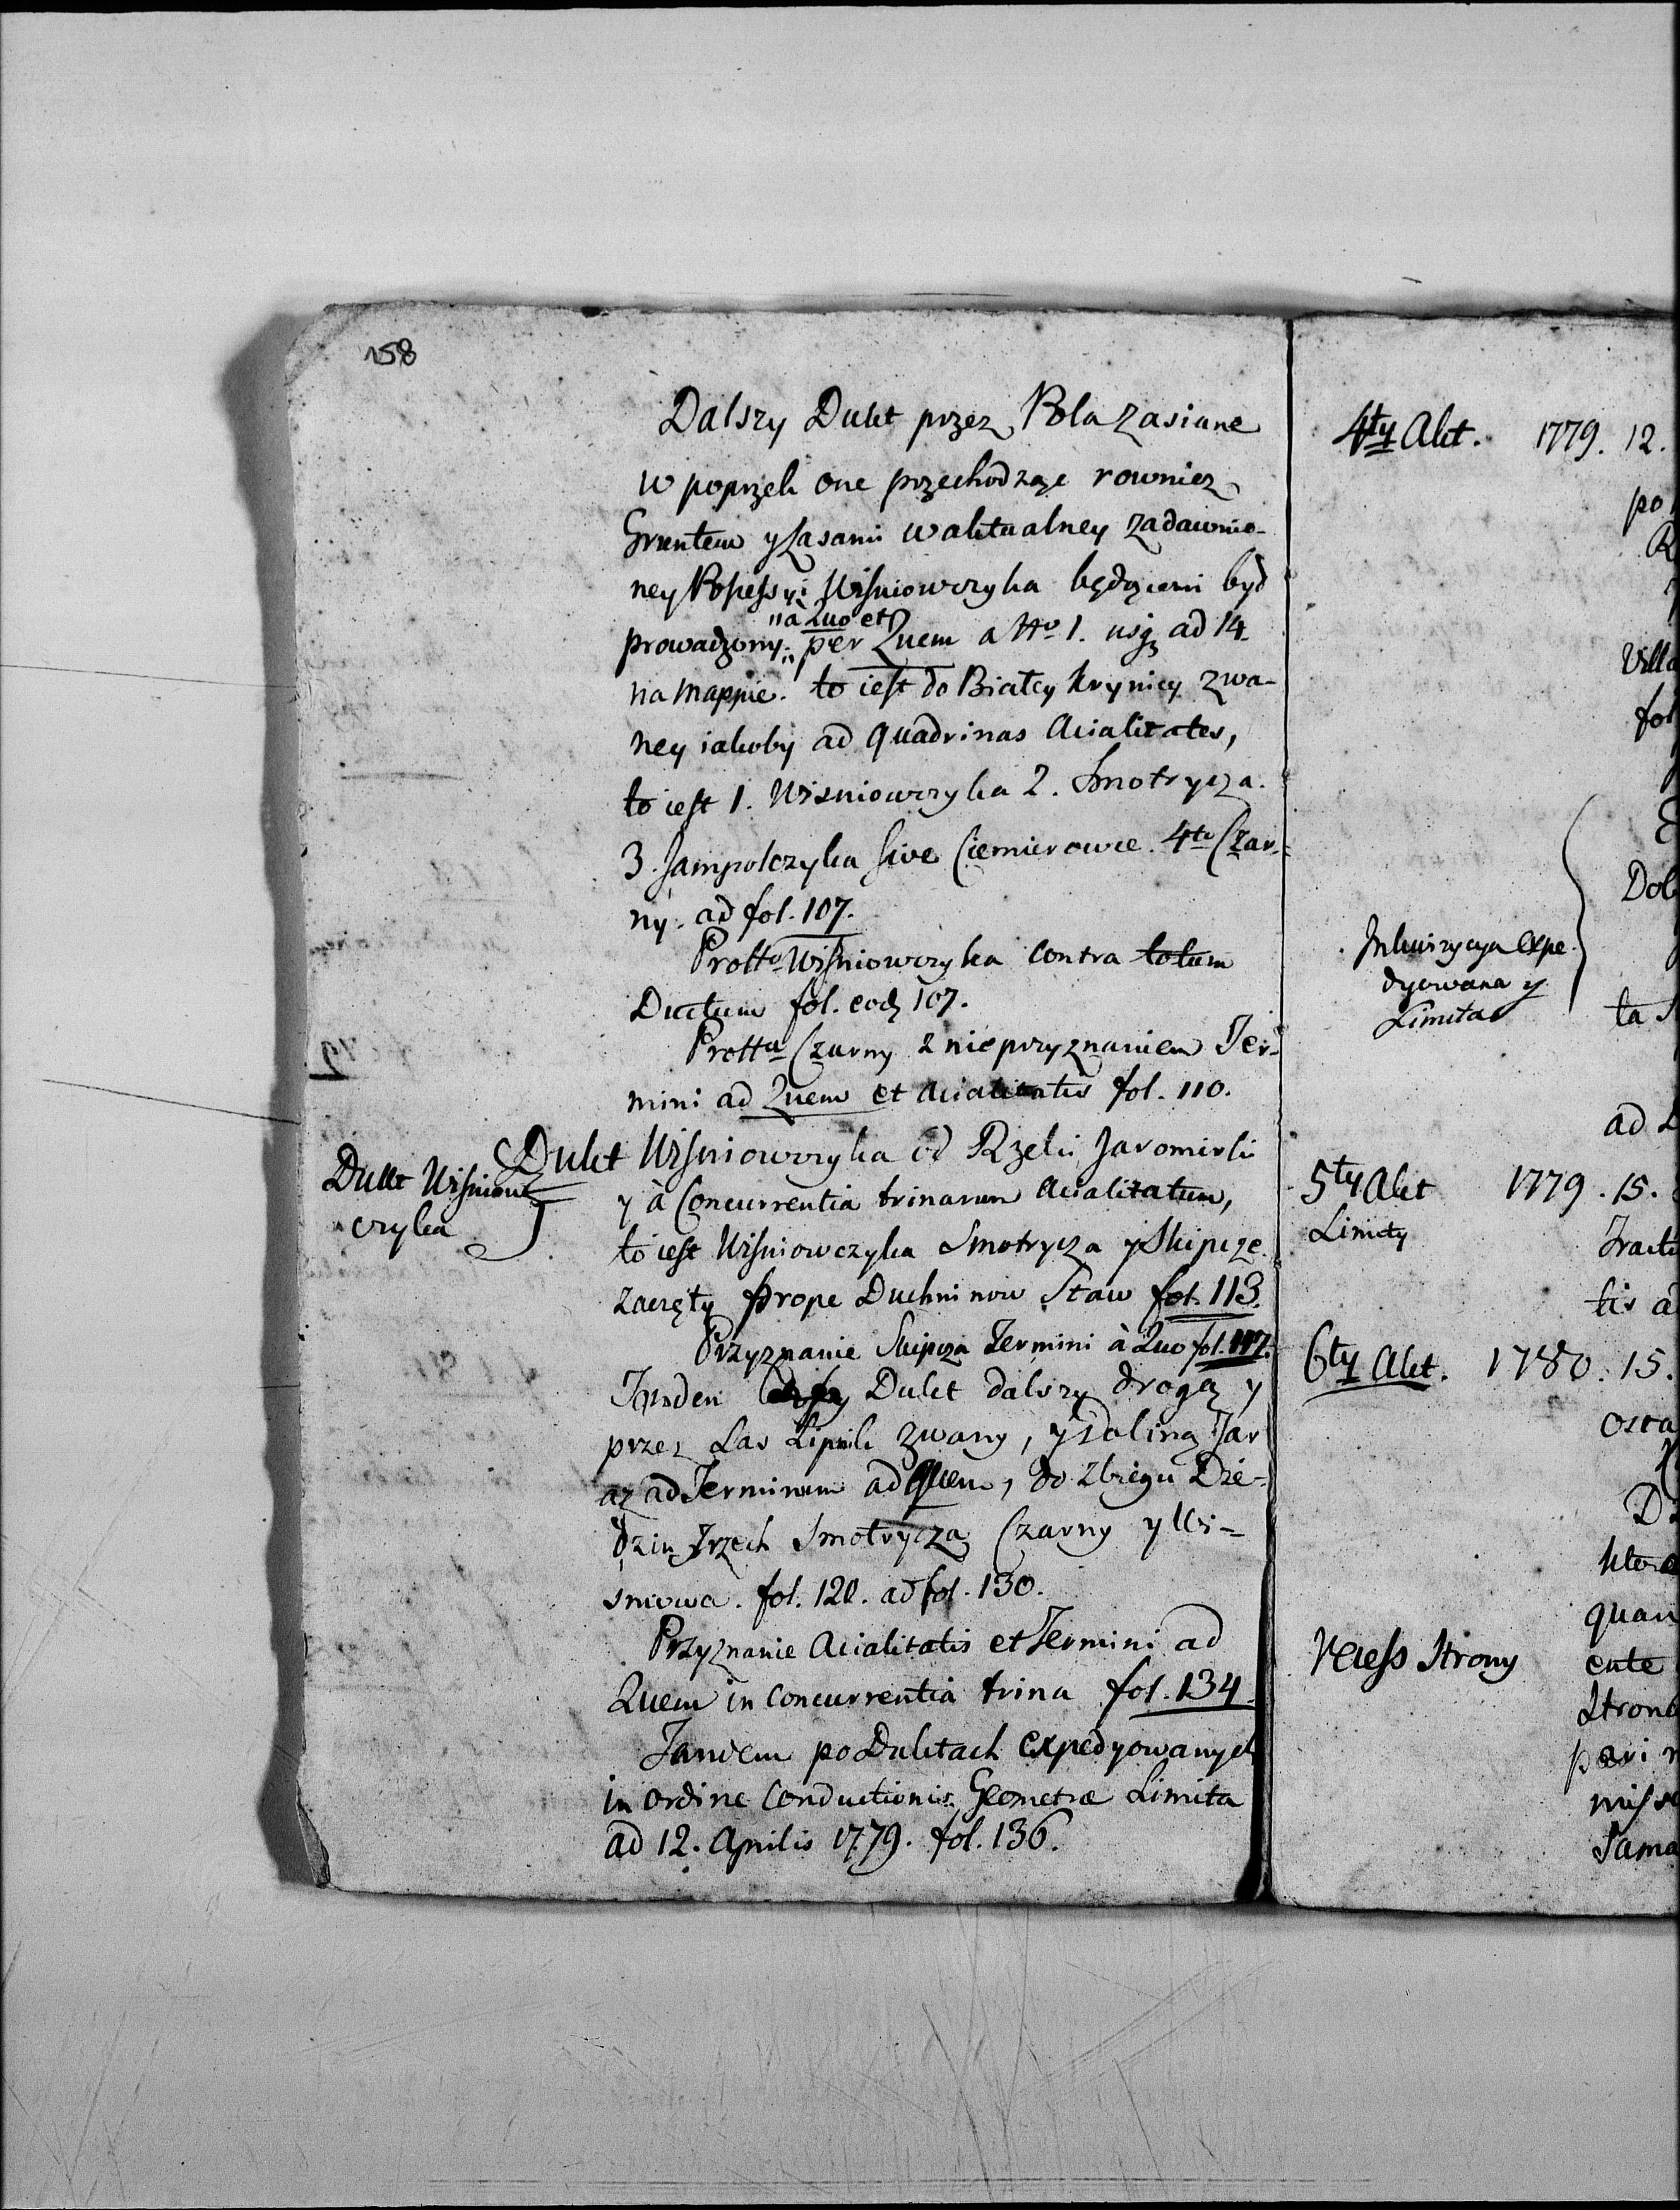 158
Dalszy Dukt przez Pola zasiane
w poprzek one przechodząc rownież
Gruntem y Lasami w aktualney zadawnio-
ney Possessyi Wisniowczyka będącemi był
prowadzony. "a Quo et" per Quem a Nro 1. usq ad 14.
na mappie. to iest do Białey Krynicy zwa-
ney iakoby ad quadrinas Acialitates,
to iest 1. Wisniowczyka 2. Smotrycza.
3. Jampolczyka sive Ciemierowce. 4to Czar-
ny. ad fol. 107.
Protta Wisniowczyka contra totum
Ductum fol. eod 107.
Protta Czarny z nieprzyznaniem Ter-
mini ad Quem et Acialitatis fol. 110.
Dukt Wisniow
czyka
Dukt Wisniowczyka od Rzeki Jaromirki
y à Concurrentia trinarum Acialitatum,
to iest Wisniowczyka Smotrycza y Skipcze
zaczęty prope Duchninow Staw fol. 113.
Przyznanie Skipcza Termini à Quo fol. 117.
Dukt dalszy drogą y
przez Las Lipnik zwany, y doliną Jar
aż ad Terminum ad Quem, do zbiegu Dzie-
dzin Trzech Smotrycza Czarny y Wi-
sniowa. fol. 120. ad fol. 130.
Przyznanie Acialitatis et Termini ad
Quem in concurrentia trina fol. 134.
Tandem po Duktach expedyowanych
in ordine conductionis Geometræ Limita
ad 12. Aprilis 1779. fol. 136.
4ty Akt. 1779. 12.
po
Villa
fol
Dob
Inkwizycya expe
dyowana y
Limita
ta
ad
5ty Akt 1779. 15.
Limity
Tract
tis a
6ty Akt. 1780. 15.
osta
D
quan
Recess Strony
ente
Stron